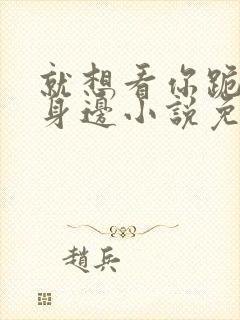 就想看你跪
身邊小說免
趙兵